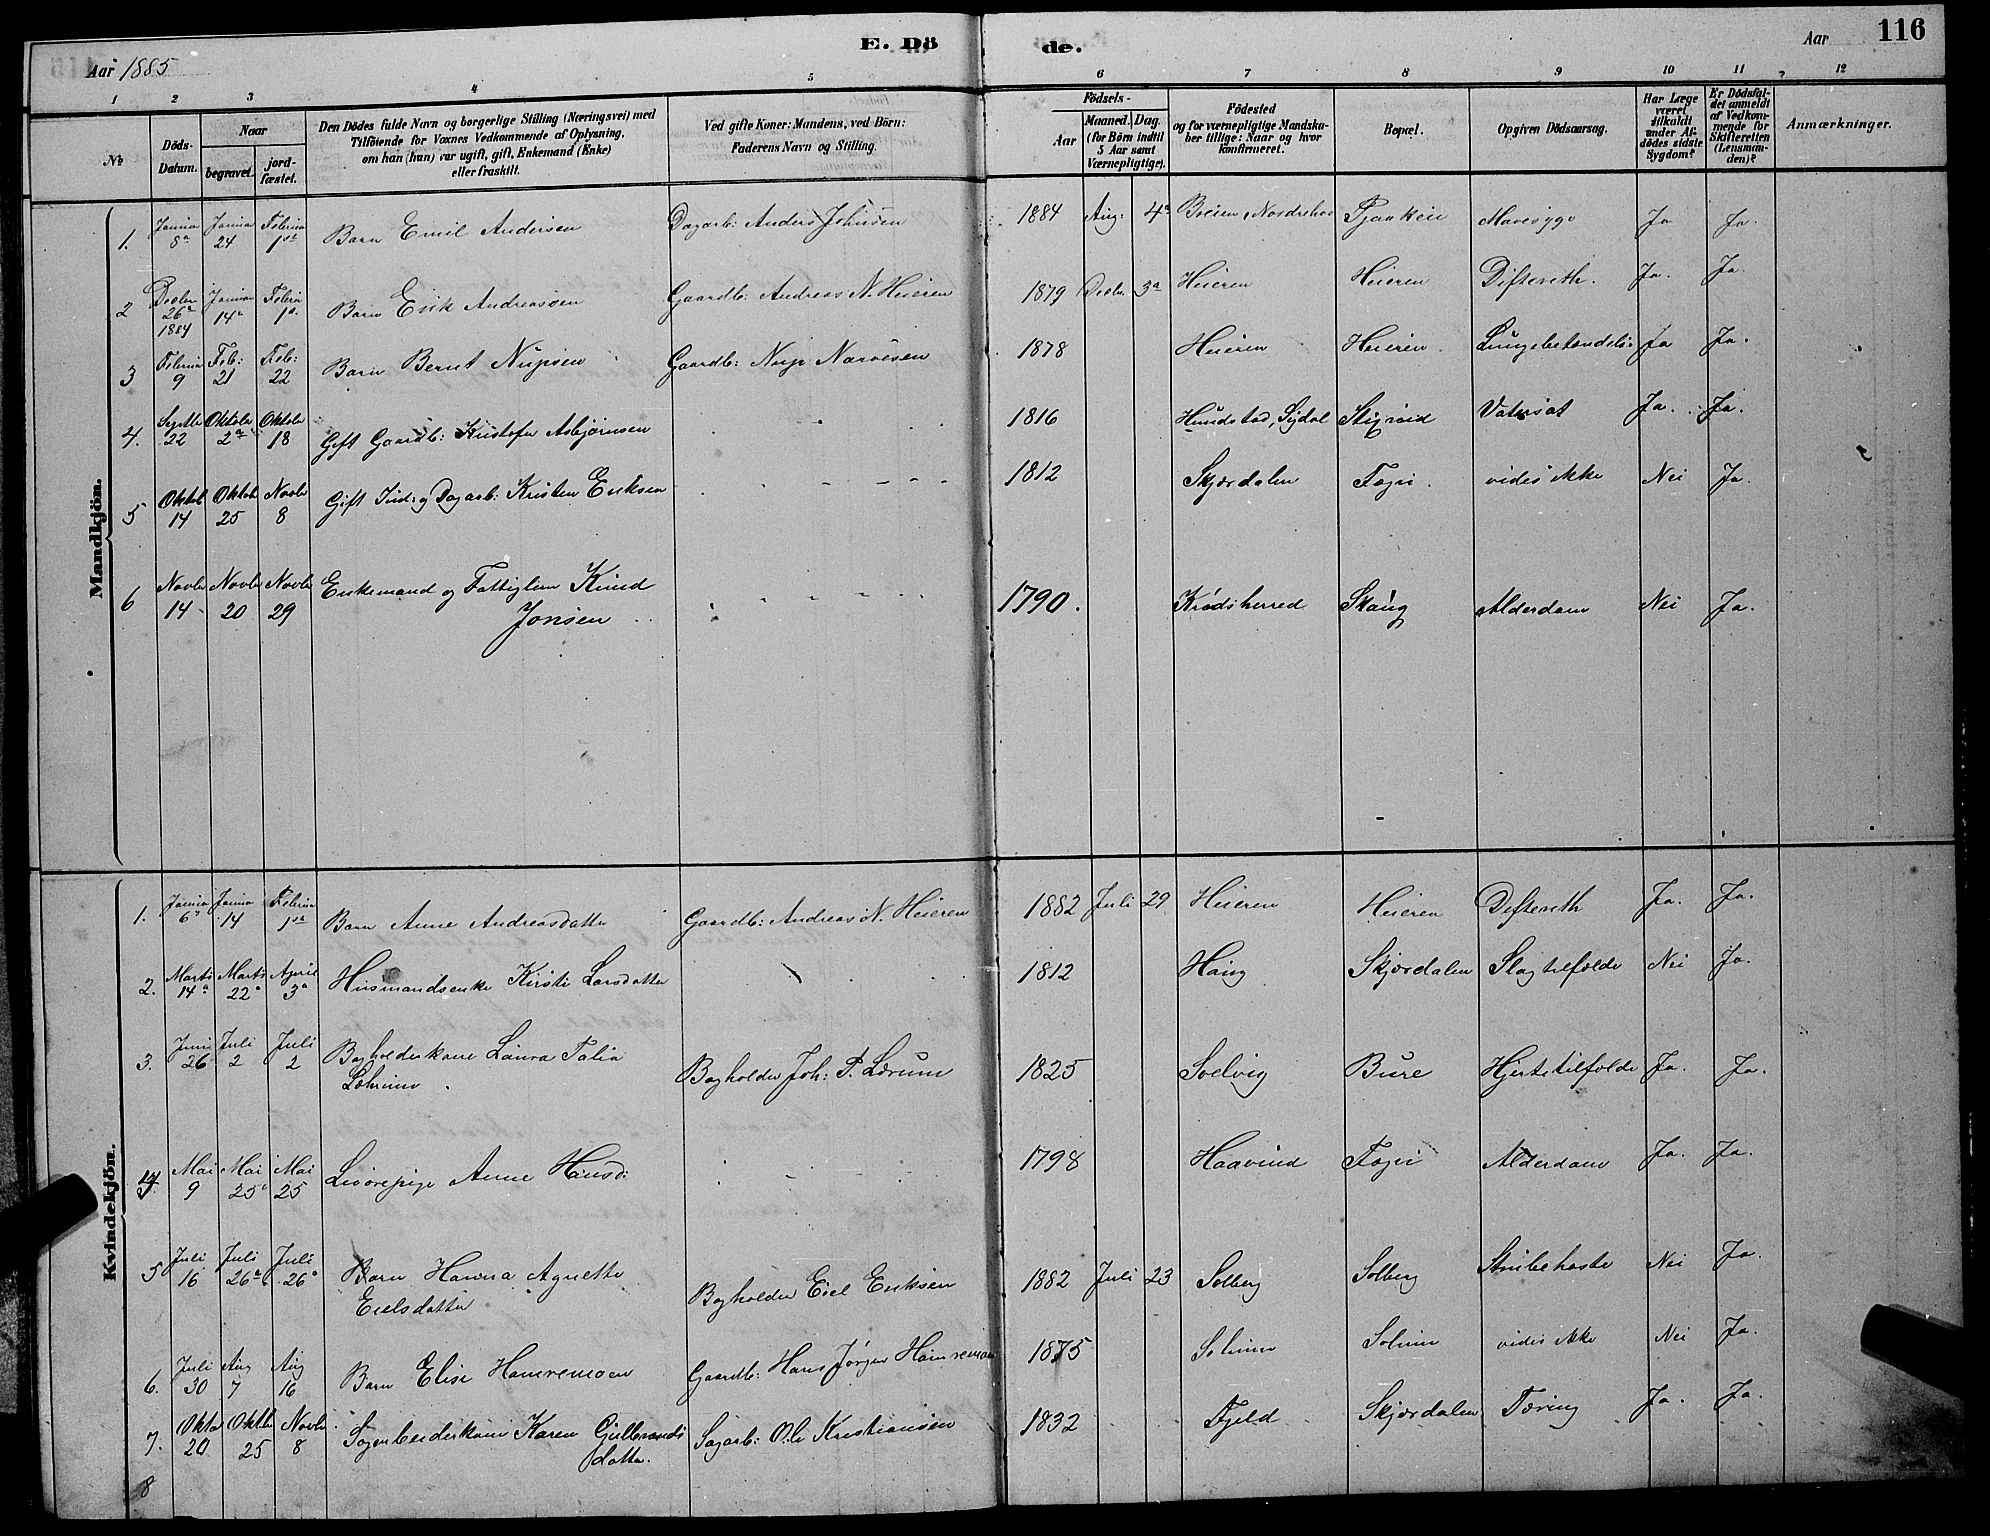 E. Dö de. 116
Aar 1885 Aar
1 2 3 4 5 6 7 8 9 10 11 12
No
Döds-Datum.
Naar begravet. jordfæstet.
Den Dödes fulde Navn og borgerlige Stilling (Næringsvei) med
Tilföiende for Voxnes Vedkommende af Oplysning,
om han (hun) var ugift, gift, Enkemand (Enke)
eller fraskilt.
Ved gifte Koner: Mandens, ved Börn:
Faderens Navn og Stilling.
Födsels-
Aar Maaned. Dag.
(for Börn indtil
5 Aar samt
Værnepligtige).
Födested
og for værnepligtige Mandskaber tillige: Naar og hvor konfirmeret.
Bopæl.
Opgiven Dödsaarsag.
Har Læge været tilkaldt under Afdödes sidste Sygdom?
Er Dödsfaldet anmeldt af Vedkommende for Skifteretten (Lensmanden)?
Anmærkninger.
Mandkjön.
1. Janua 8a Janua 24 Februa 1ste Barn Emil Andersen Dagarb: Anders Johnsen 1884 Aug: 4a Breien Norderhov Mavesyge Ja Ja.
2 Decbr 26a 1884 Janua 14a Februa 1s. Barn Erik Andreasøen Gaardb: Andreas N. Heieren 1879 Decbr. 3a Heieren Heieren Difterith. Ja. Ja.
3 Februa 9 Feb: 21 Feb: 22 Barn Bernt Nirisen Gaardb: Narvesen 1878 Heieren Heieren Ja Ja.
4. Septbr 22 Oktobr 2a Oktobr 18 Gift Gaardb: Kristofer Asbjørnsen 1816 Hundstad, Sigdal Vatersot Ja. Ja.
5 Oktob 14 Oktob 25 Novbr 8 Gift Ind: og Dagarb: Kristen Eriksen 1812 Skjærdalen Fægri vides ikke Nei Ja.
6 Novbr 14 Novbr 20 Novbr 29 Enkemand og Fattiglem Knud
Jonsen 1790. Krødsherred Skaug Alderdom Nei Ja.
Kvindekjön.
1. Janua 6a Janua 14 Februa 1ste Barn Anne Andreasdatter Gaardb: Andreas N. Heieren 1882 Juli 29 Heieren Heieren Difterith Ja. Ja.
2. Marts 14a Marts 22a April 3a Husmandsenke Kirsti Larsdatter 1812 Haug Skjærdalen Slagtilfælde Nei Ja.
3. Juni 26 Juli 2 Juli 2 Bogholderkone Laura Talia
Bogholder Joh: P. Lærum 1825 Soelvig Bure Hjertetilfælde Ja. Ja.
4 Mai 9 Mai 25 Mai 25 Anne Hansd: 1798 Haavind Fægri Alderdom Ja. Ja.
5 Juli 16 Juli 26a Juli 26a Barn Hanna Agnette
Eielsdatter Bogholder Eiel Eriksen 1882 Juli 23 Solberg Solberg Strubehoste Nei Ja.
6. Juli 30 Aug 7 Aug 16 Barn Elise Hamremoen Gaardb: Hans Jørgen Hamremoen 1875 Solum Solum vides ikke Nei Ja.
7. Oktbr 20 Oktbr 25 Novbr 8 Sagarbeiderkone Karen Gulbrands
datter. Sagarb: Ole Kristiansen 1832 Fjeld Skjærdalen Tæring Ja. Ja.
8